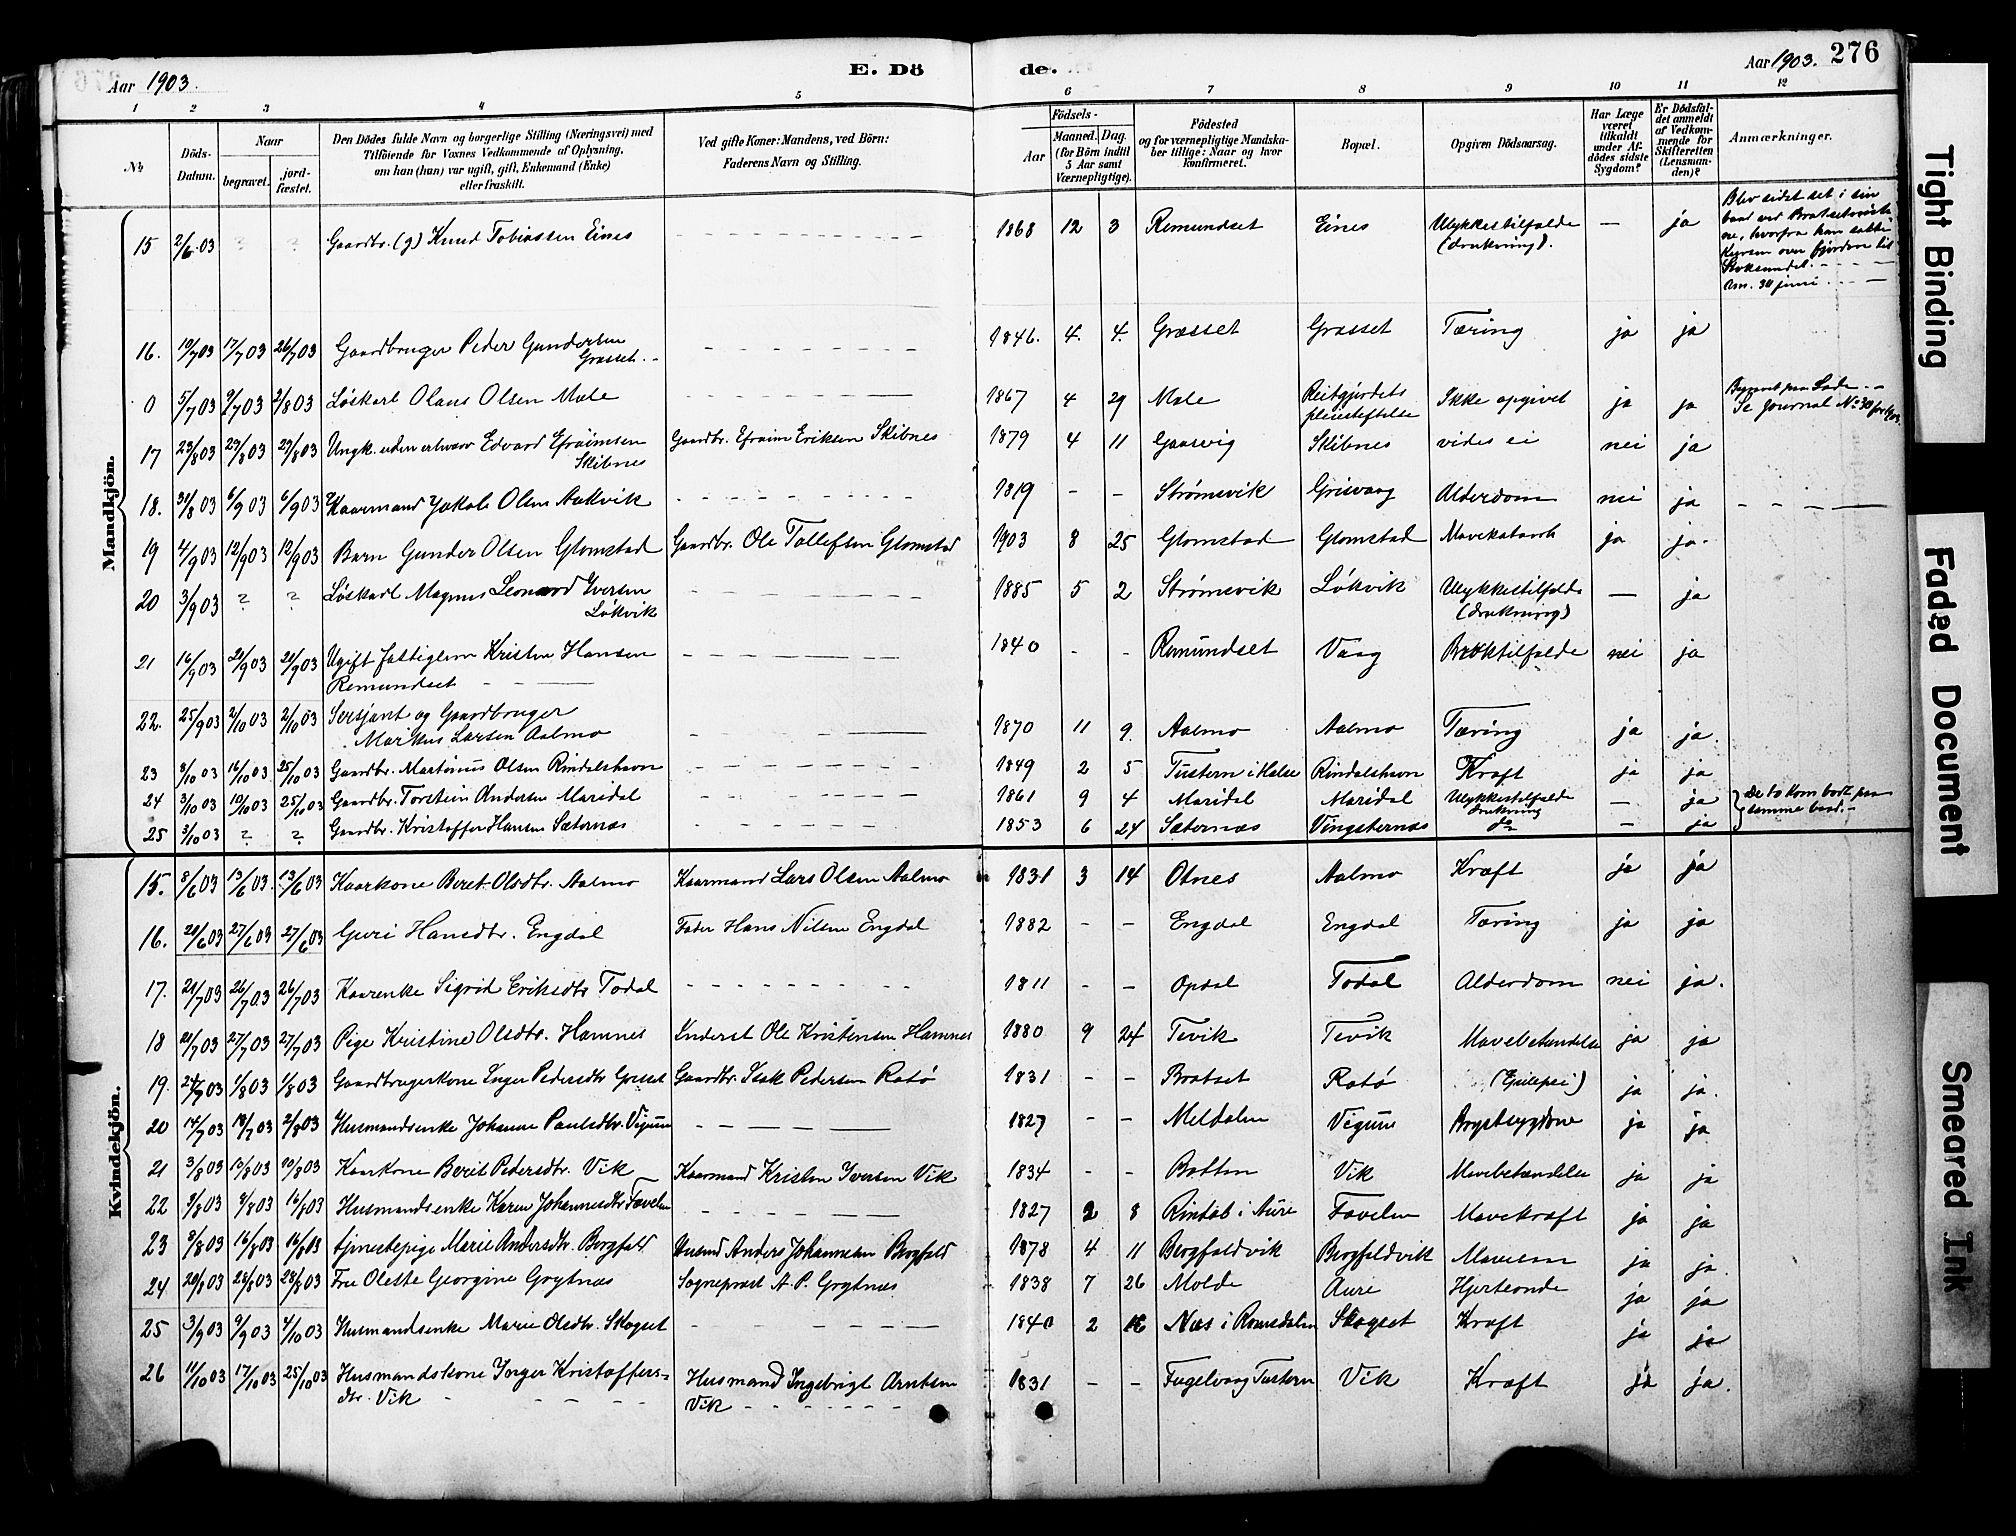 Aar 1903.
E. Dö
de.
Aar 1903. 276
1 2 3 4 5 6 7 8 9 10 11 12
No. Döds-Datum. Naar begravet. jord-fæstet. Den Dödes fulde Navn og borgerlige Stilling (Næringsvei) med Tilföiende for Voxnes Vedkommende af Oplysning, om han (hun) var ugift, gift, Enkemand (Enke) eller fraskilt. Ved gifte Koner: Mandens, ved Börn: Faderens Navn og Stilling. Födsels- Aar Maaned. Dag. (for Börn indtil 5 Aar samt Værnepligtige). Födested og for værnepligtige Mandskaber tillige: Naar og hvor konfirmeret. Bopæl. Opgiven Dödsaarsag. Har Læge været tilkaldt under Afdödes sidste Sygdom? Er Dödsfaldet anmeldt af Vedkommende for Skifteretten (Lensmanden)? Anmærkninger.
Mandkjön.
15 2/6 03 ? ? Gaardbr. (g) Knud Tobiassen Eines 1868 12 3 Remundset Eines Ulykkestilfælde (drukning). — ja Blev sidst set i sin baad ved hvorfra han satte Kursen over fjorden til Anm. 30 juni
16. 10/7 03 17/7 03 26/7 03 Gaardbruger Peder Gundersen Grasset 1846. 4. 4. Grasset Grasset Tæring ja ja
0 5/7 03 9/7 03 2/8 03 Løskarl Olaus Olsen Mæle 1867 4 29 Mæle Reitgjerdets pleiestiftelse Ikke opgivet ja ja Begravet paa Lade. Se Journal No 30
17 23/8 03 29/8 03 29/8 03 Ungk. uden erhverv Edvard Efraimsen Skibnes Gaardbr. Efraim Eriksen Skibnes 1879 4 11 Gaasvig Skibnes vides ei nei ja
18. 31/8 03 6/9 03 6/9 03 Kaarmand Jakob Olsen Aakvik 1819 - - Strømsvik Grisvaag Alderdom nei ja
19 4/9 03 12/9 03 12/9 03 Barn Gunder Olsen Glomstad Gaardbr. Ole Tollefsen Glomstad 1903 8 25 Glomstad Glomstad Mavekatarrh ja ja.
20 3/9 03 ? ? Løskarl Magnus Leonard Iversen Løkvik 1885 5 2 Strømsvik Løkvik Ulykkestilfælde (drukning) — ja
21 16/9 03 21/9 03 21/9 03 Ugift fattiglem Kristen Hansen Remundset 1840 - - Remundset Vaag Broktilfælde nei ja
22. 25/9 03 2/10 03 2/10 03 Sersjant og Gaardbruger Markus Larsen Aalmo 1870 11 9 Aalmo Aalmo Tæring ja ja
23 8/10 03 16/10 03 25/10 03 Gaardbr. Martinus Olsen Rindalshavn 1849 2 5 Tustern i Halse Rindalshavn Kræft ja ja
24 3/10 03 10/10 03 25/10 03 Gaardbr. Torstein Andersen Maridal 1861 9 4 Maridal Maridal Ulykkestilfælde drukning — ja De to kom bort paa samme baad.
25 3/10 03 ? ? Gaardbr. Kristoffer Hansen Sæternæs 1853 6 24 Sæternæs Vingsternæs do — ja
Kvindekjön.
15. 8/6 03 13/6 03 13/6 03 Kaarkone Beret Olsdtr. Aalmo Kaarmand Lars Olsen Aalmo 1831 3 14 Otnes Aalmo Kræft ja ja
16. 20/6 03 27/6 03 27/6 03 Guri Hansdtr. Engdal Fader Hans Nilsen Engdal 1882 - - Engdal Engdal Tæring ja ja
17. 21/7 03 26/7 03 26/7 03 Kaarenke Sigrid Eriksdtr Todal 1811 - - Opdal Todal Alderdom nei ja.
18 21/7 03 27/7 03 27/7 03 Pige Kristine Olsdtr. Hamnes Inderst Ole Kristensen Hamnes 1880 9 24 Tevik Tevik Mavebetændelse ja ja
19. 24/7 03 1/8 03 1/8 03 Gaardbrugerkone Inger Pedersdtr Gaardbr. Isak Pedersen Rotø 1831 - - Bratset Rotø (Epilepsi) ja ja.
20 14/7 03 18/7 03 2/8 03 Husmandsenke Johanne Paulsdtr. Vigum 1827 - - Meldalen Vigum Brystsygdom ja ja
21 3/8 03 10/8 03 10/8 03 Kaarkone Berit Pedersdtr. Vik Kaarmand Kristen Iversen Vik 1834 - - Botten Vik Mavebetændelse ja ja
22 3/8 03 9/8 03 16/8 03 Husmandsenke Karen Johannesdtr Favelen 1827 2 8 Rindal i Aure Favelen Mavekræft ja ja
23 8/8 03 16/8 03 16/8 03 tjenestepige Marie Andersdtr. Bergfald Husmd Anders Johannesen Bergfald 1878 4 11 Bergfaldvik Bergfaldvik ja ja.
24. 20/8 03 28/8 03 28/8 03 Fru Olette Georgine Grytnæs Sogneprest A. P. Grytnæs 1838 7 26 Molde Aure Hjerteonde ja ja
25 3/9 03 9/9 03 4/10 03 Husmandsenke Marie Olsdtr. Skogset 1840 2 Næs i Romsdalen Skogset Kræft ja ja
26 11/10 03 17/10 03 25/10 03 Husmandskone Inger Kristoffersdtr. Vik Husmand Ingebrigt Arntsen Vik 1831 - - Fugelvaag Tustern Vik Kræft ja ja.
Tight Binding
Faded Document
Smeared Ink